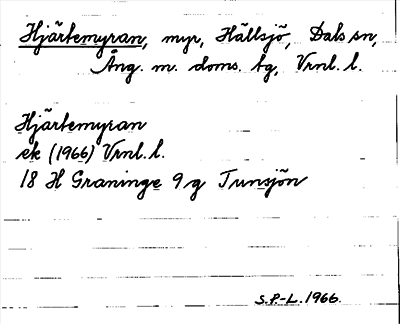 Hjärtemyran, myr, Hällsjö, Dals sn,
Ång. m. doms. tg, Vrnl. l.
Hjärtemyran
ek (1966) Vrnl. l.
18 H Graninge 9 g Tunsjön
S.P-L. 1966.